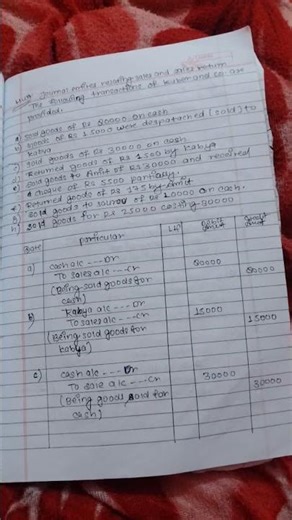 Journal entries recording sales and sales return
The following transactions of kumar and co are
provided:
a) sold goods of Rs 80000 on cash
b) goods of Rs 15000 were despatched (sold) to
kabya
c) sold goods of Rs 30000 on cash
Returned goods of Rs 1500 by kabya
sold goods to Binit of Rs 30000 and received
a cheque of Rs 5500 partially.
Returned goods of Rs 175 by Binit
sold goods to saurav of Rs 10000 on cash.
h) sold goods for Rs 25000 costing 30000
Date particular L.f Debit amount Credit amount
a) cash a/c --- Dr 80000
To sales a/c --- Cr 80000
(Being sold goods for
cash)
b) Kabya a/c --- Dr 15000
To sales a/c --- Cr 15000
(Being sold goods for
kabya)
c) cash a/c --- Dr 30000
To sale a/c --- Cr 30000
(Being goods sold for
cash)